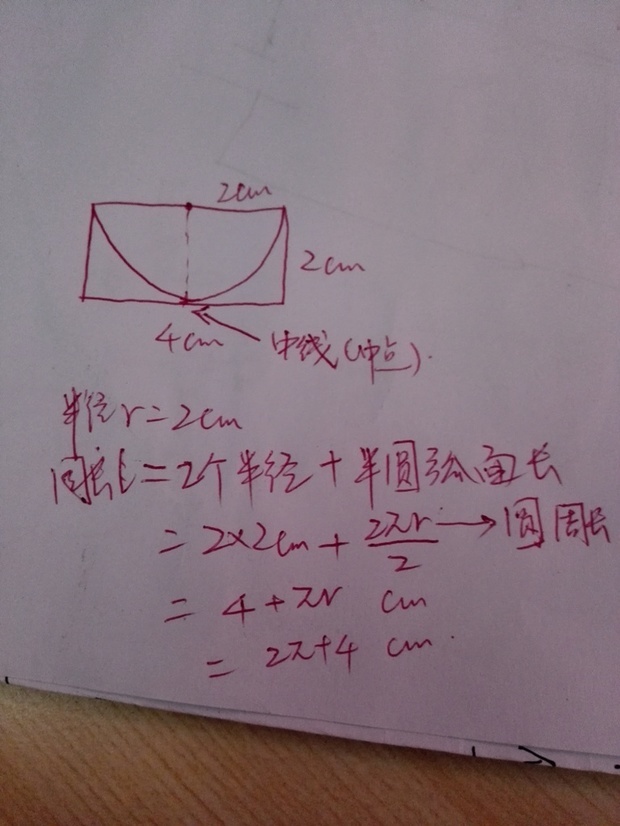 2cm
2cm
4cm
中线(中点).
半径r=2cm
周长l=2个半径+半圆弧面长
=2×2cm+2πr/2→圆周长
=4+πr cm
=2π+4 cm.